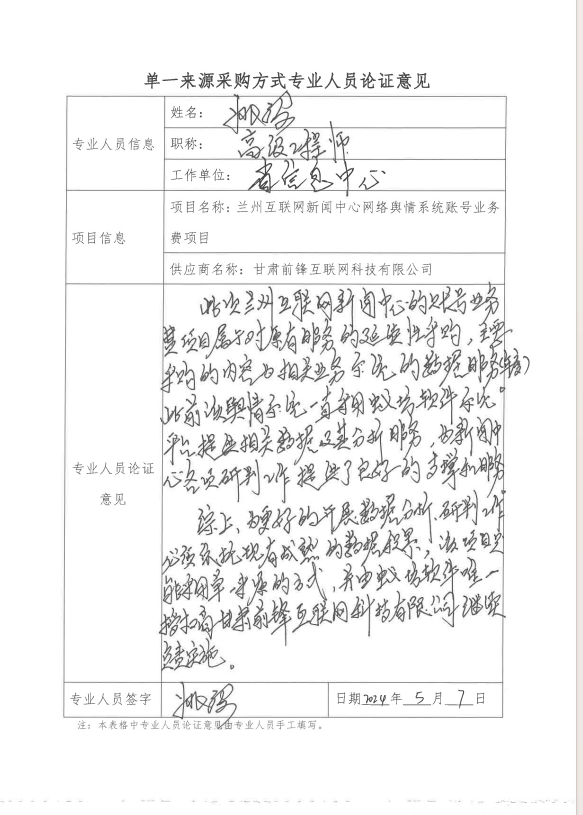 单一来源采购方式专业人员论证意见
专业人员信息
姓名：
职称： 高级工程师
工作单位： 省信息中心
项目信息
项目名称：兰州互联网新闻中心网络舆情系统账号业务
费项目
供应商名称：甘肃前锋互联网科技有限公司
专业人员论证
意见
此次兰州互联网新闻中心的账号业务
费项目属于对原有服务的延续性采购，主要
采购的内容为相关业务系统的数据服务
此前该舆情系统一直采用蚁坊软件系统
平台提供相关数据及其分析服务，为新闻中
心各项研判工作提供了良好的支撑和服务。
综上，为更好的开展数据分析、研判工作
必须依托现有成熟的数据积累，该项目只
能采用单一来源的方式，并由蚁坊软件唯一
授权商甘肃前锋互联网科技有限公司继续
负责实施。
专业人员签字
日期2024年 5 月 7 日
注：本表格中专业人员论证意见由专业人员手工填写。